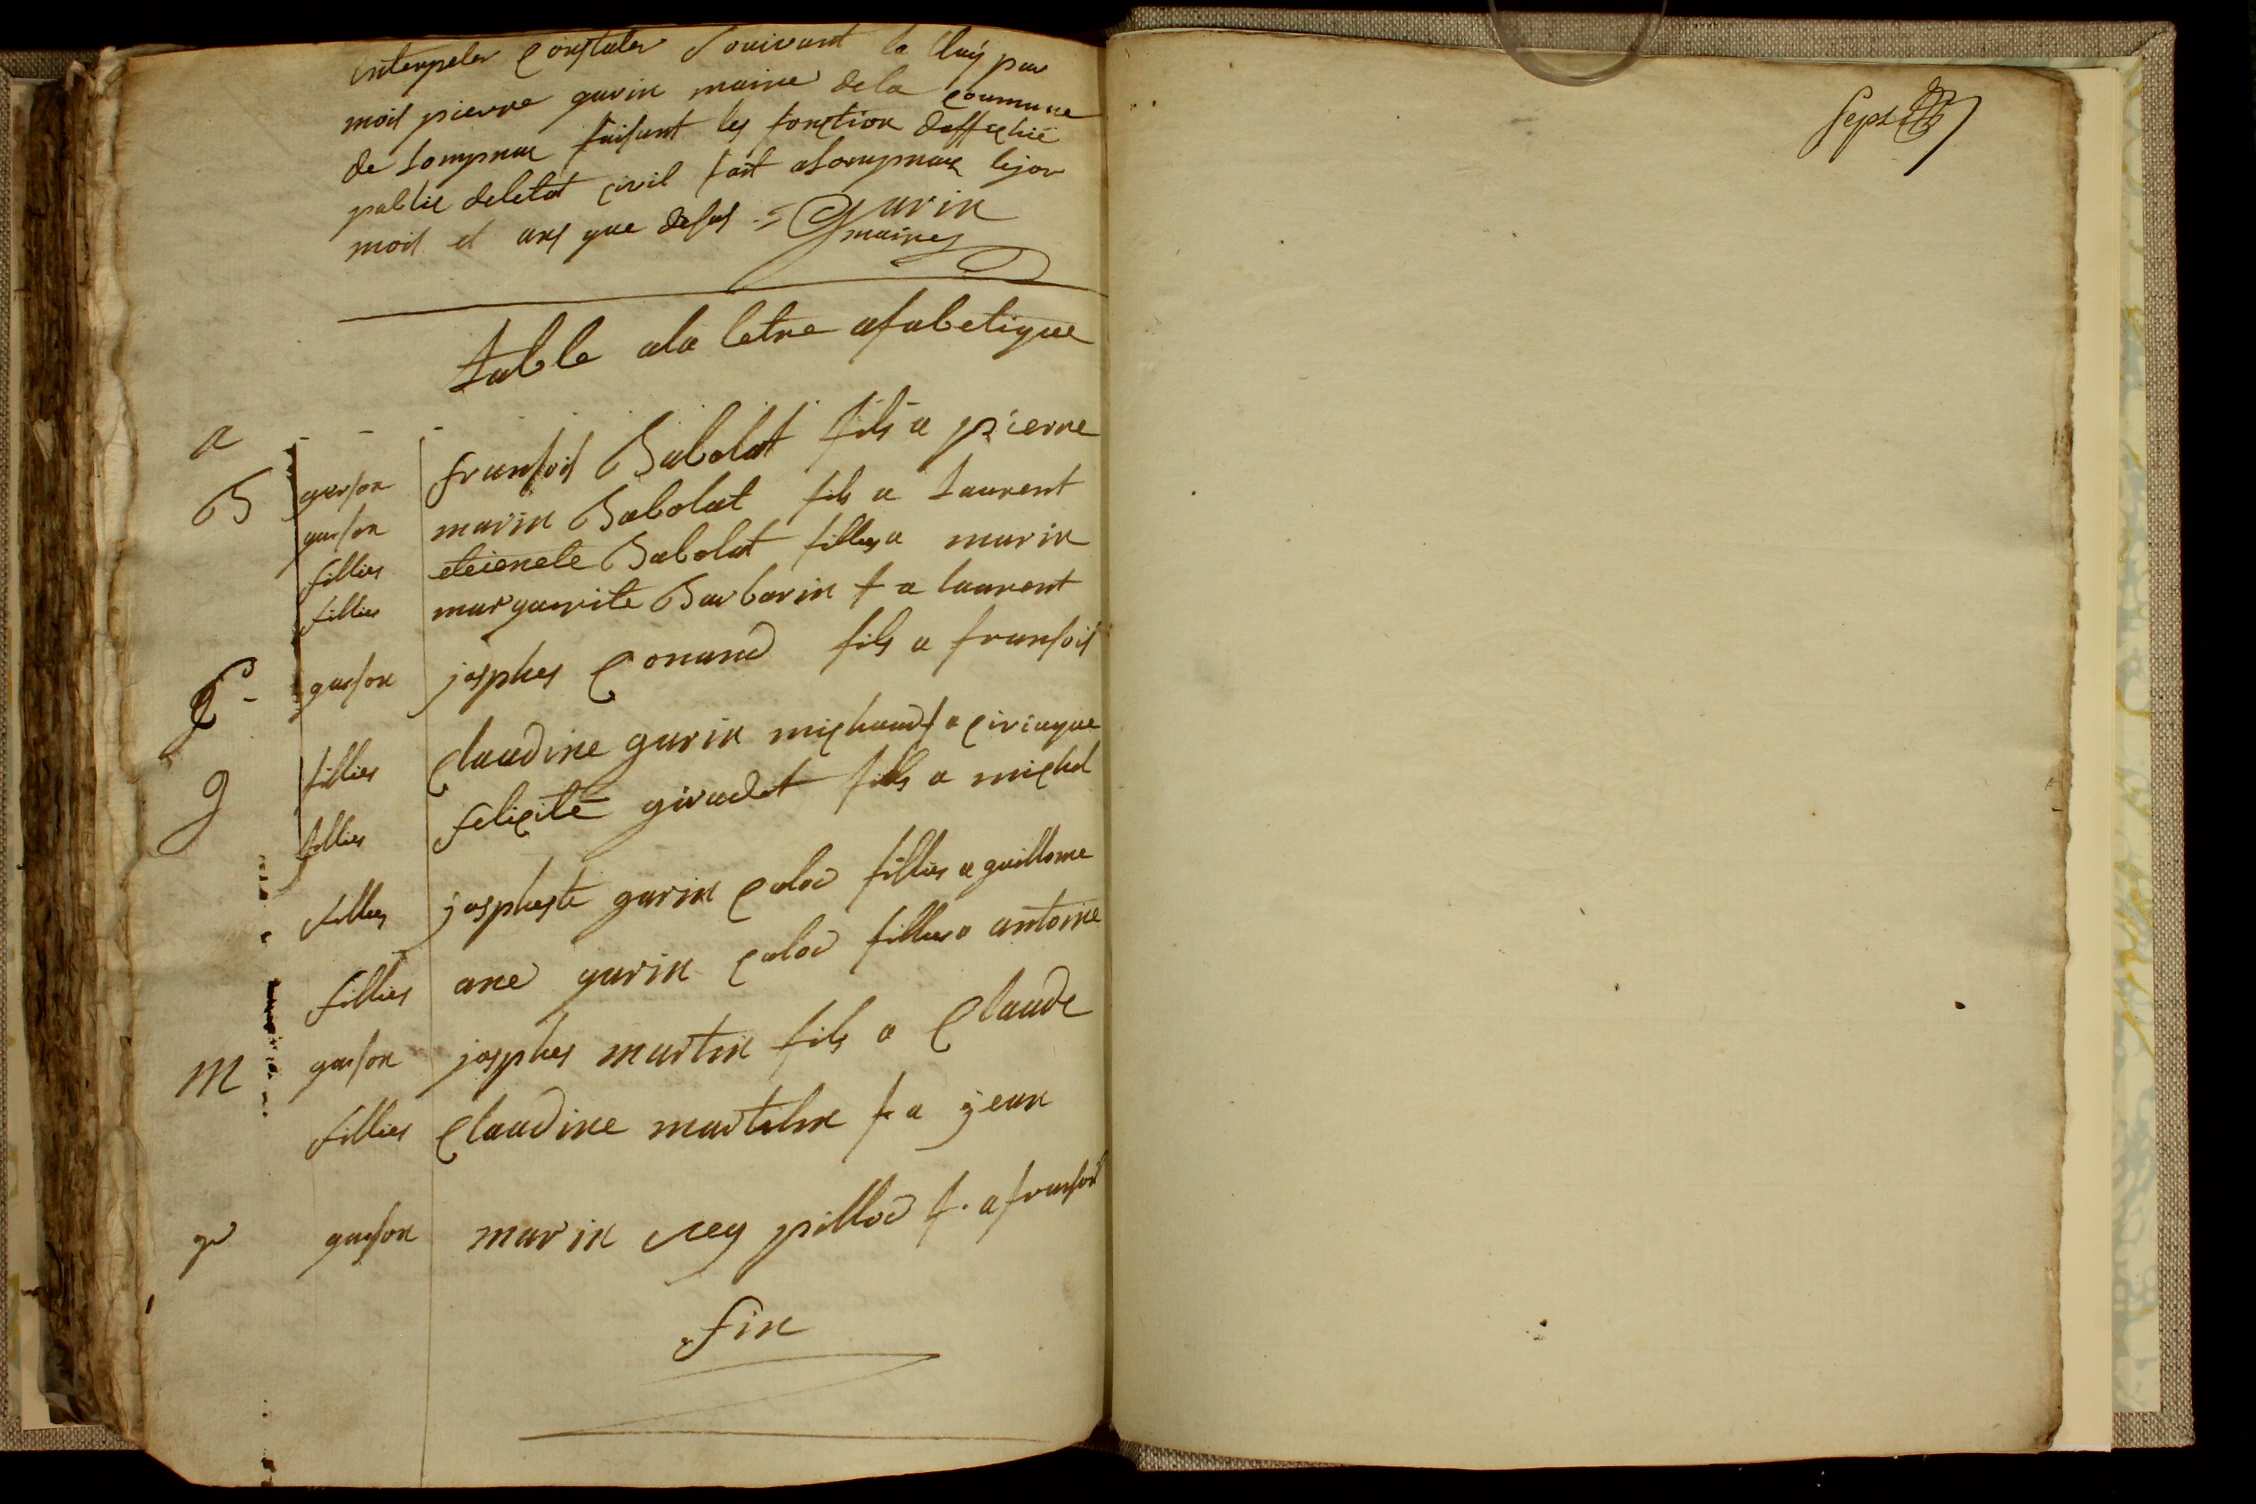 interpeler constater souivant la lluy par
mois pierre gurin maire dela coumune
de Lompnax faisant les fonction daffechié
public deletat civil fait aLompnax lejor
mois et ans que desus = gurin
maires
table ala letre afabetique
a
B garson fransois Babolat fils a pierre
garson marin Babolat fils a Laurent
fillies eteienete Babolat fillies a marin
fillies marguerite Barbarin f a laurent
C garson josphes Conand fils a fransois
fillies Claudine gurin michaud f a ciriaque
g
fillies felicite giradet a michel
fillies josphete gurin calod fillies a guillome
fillies ane gurin calod fillies a antoine
m garson josphes martin fils a Claude
fillies Claudine martin f a jean
garson marin rey pillod f. a fransois
fin
Sept